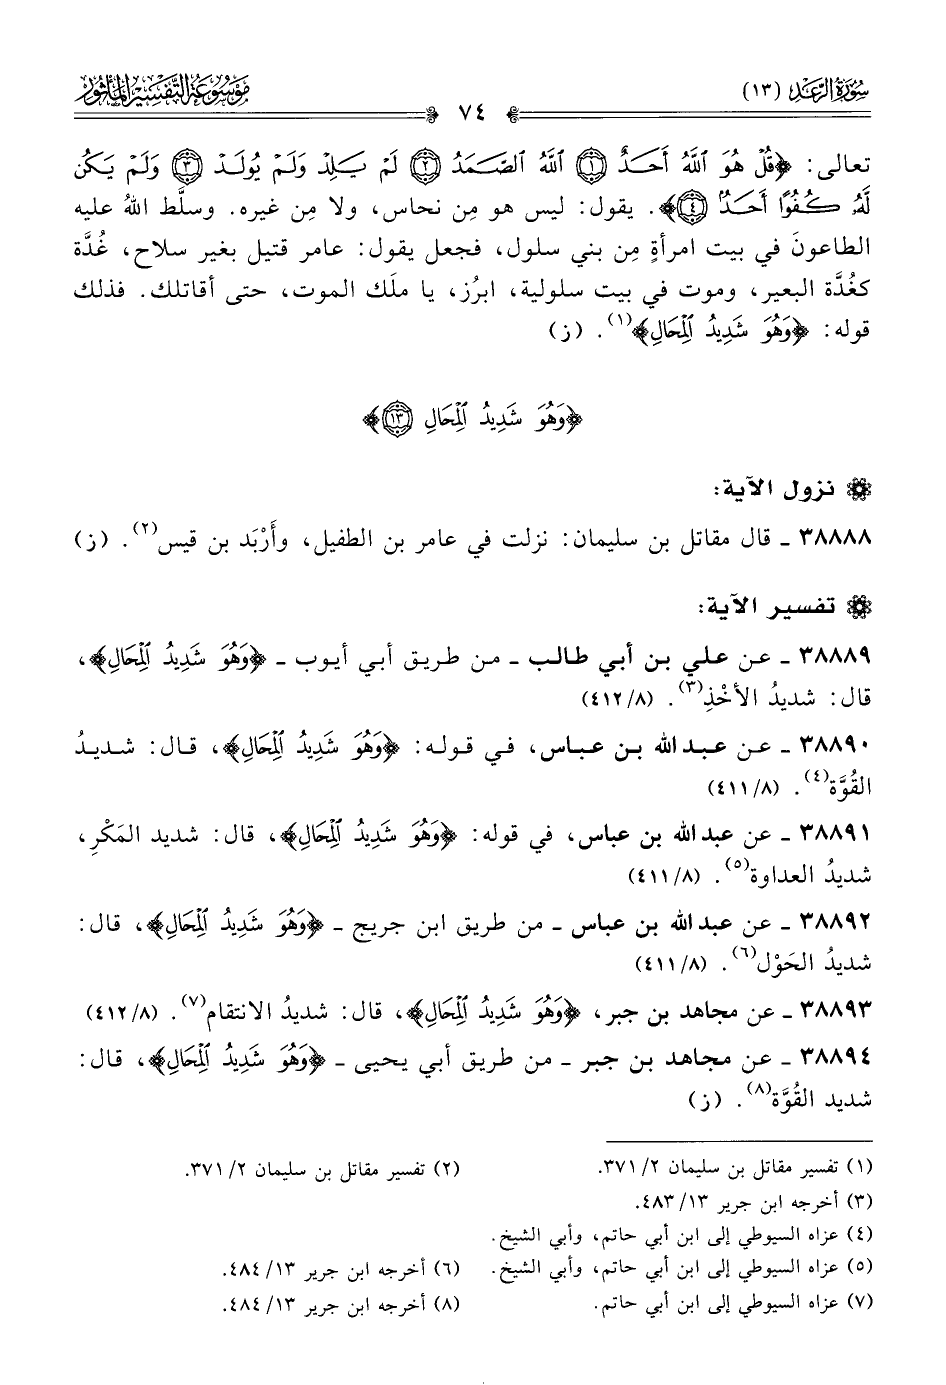 سُورَةُ الرَّعْد (١٣)
٧٤
مَوْسُوعَة التَّفْسِير المَأْثُور
تعالى: ﴿قُلْ هُوَ ٱللَّهُ أَحَدٌ ١ ٱللَّهُ ٱلصَّمَدُ ٢ لَمْ يَلِدْ وَلَمْ يُولَدْ ٣ وَلَمْ يَكُن
لَّهُۥ كُفُوًا أَحَدٌۢ ٤﴾. يقول: ليس هو مِن نحاس، ولا مِن غيره. وسلَّط اللهُ عليه
الطاعونَ في بيت امرأةٍ مِن بني سلول، فجعل يقول: عامر قتيل بغير سلاح، غُدَّة
كغُدَّة البعير، وموت في بيت سلولية، ابرُز، يا ملَك الموت، حتى أقاتلك. فذلك
قوله: ﴿وَهُوَ شَدِيدُ ٱلْمِحَالِ﴾(١). (ز)
﴿وَهُوَ شَدِيدُ ٱلْمِحَالِ ١٣﴾
نزول الآية:
٣٨٨٨٨ ـ قال مقاتل بن سليمان: نزلت في عامر بن الطفيل، وأَرْبَد بن قيس(٢). (ز)
تفسير الآية:
٣٨٨٨٩ ـ عن علي بن أبي طالب ـ من طريق أبي أيوب ـ ﴿وَهُوَ شَدِيدُ ٱلْمِحَالِ﴾،
قال: شديدُ الأخْذِ(٣). (٤١٢/٨)
٣٨٨٩٠ ـ عن عبد الله بن عباس، في قوله: ﴿وَهُوَ شَدِيدُ ٱلْمِحَالِ﴾، قال: شديدُ
القُوَّة(٤). (٤١١/٨)
٣٨٨٩١ ـ عن عبد الله بن عباس، في قوله: ﴿وَهُوَ شَدِيدُ ٱلْمِحَالِ﴾، قال: شديد المَكْرِ،
شديدُ العداوة(٥). (٤١١/٨)
٣٨٨٩٢ ـ عن عبد الله بن عباس ـ من طريق ابن جريج ـ ﴿وَهُوَ شَدِيدُ ٱلْمِحَالِ﴾، قال:
شديدُ الحَوْل(٦). (٤١١/٨)
٣٨٨٩٣ ـ عن مجاهد بن جبر، ﴿وَهُوَ شَدِيدُ ٱلْمِحَالِ﴾، قال: شديدُ الانتقام(٧). (٤١٢/٨)
٣٨٨٩٤ ـ عن مجاهد بن جبر ـ من طريق أبي يحيى ـ ﴿وَهُوَ شَدِيدُ ٱلْمِحَالِ﴾، قال:
شديد القُوَّة(٨). (ز)
(١) تفسير مقاتل بن سليمان ٢/ ٣٧١.
(٢) تفسير مقاتل بن سليمان ٢/ ٣٧١.
(٣) أخرجه ابن جرير ١٣/ ٤٨٣.
(٤) عزاه السيوطي إلى ابن أبي حاتم، وأبي الشيخ.
(٥) عزاه السيوطي إلى ابن أبي حاتم، وأبي الشيخ.
(٦) أخرجه ابن جرير ١٣/ ٤٨٤.
(٧) عزاه السيوطي إلى ابن أبي حاتم.
(٨) أخرجه ابن جرير ١٣/ ٤٨٤.